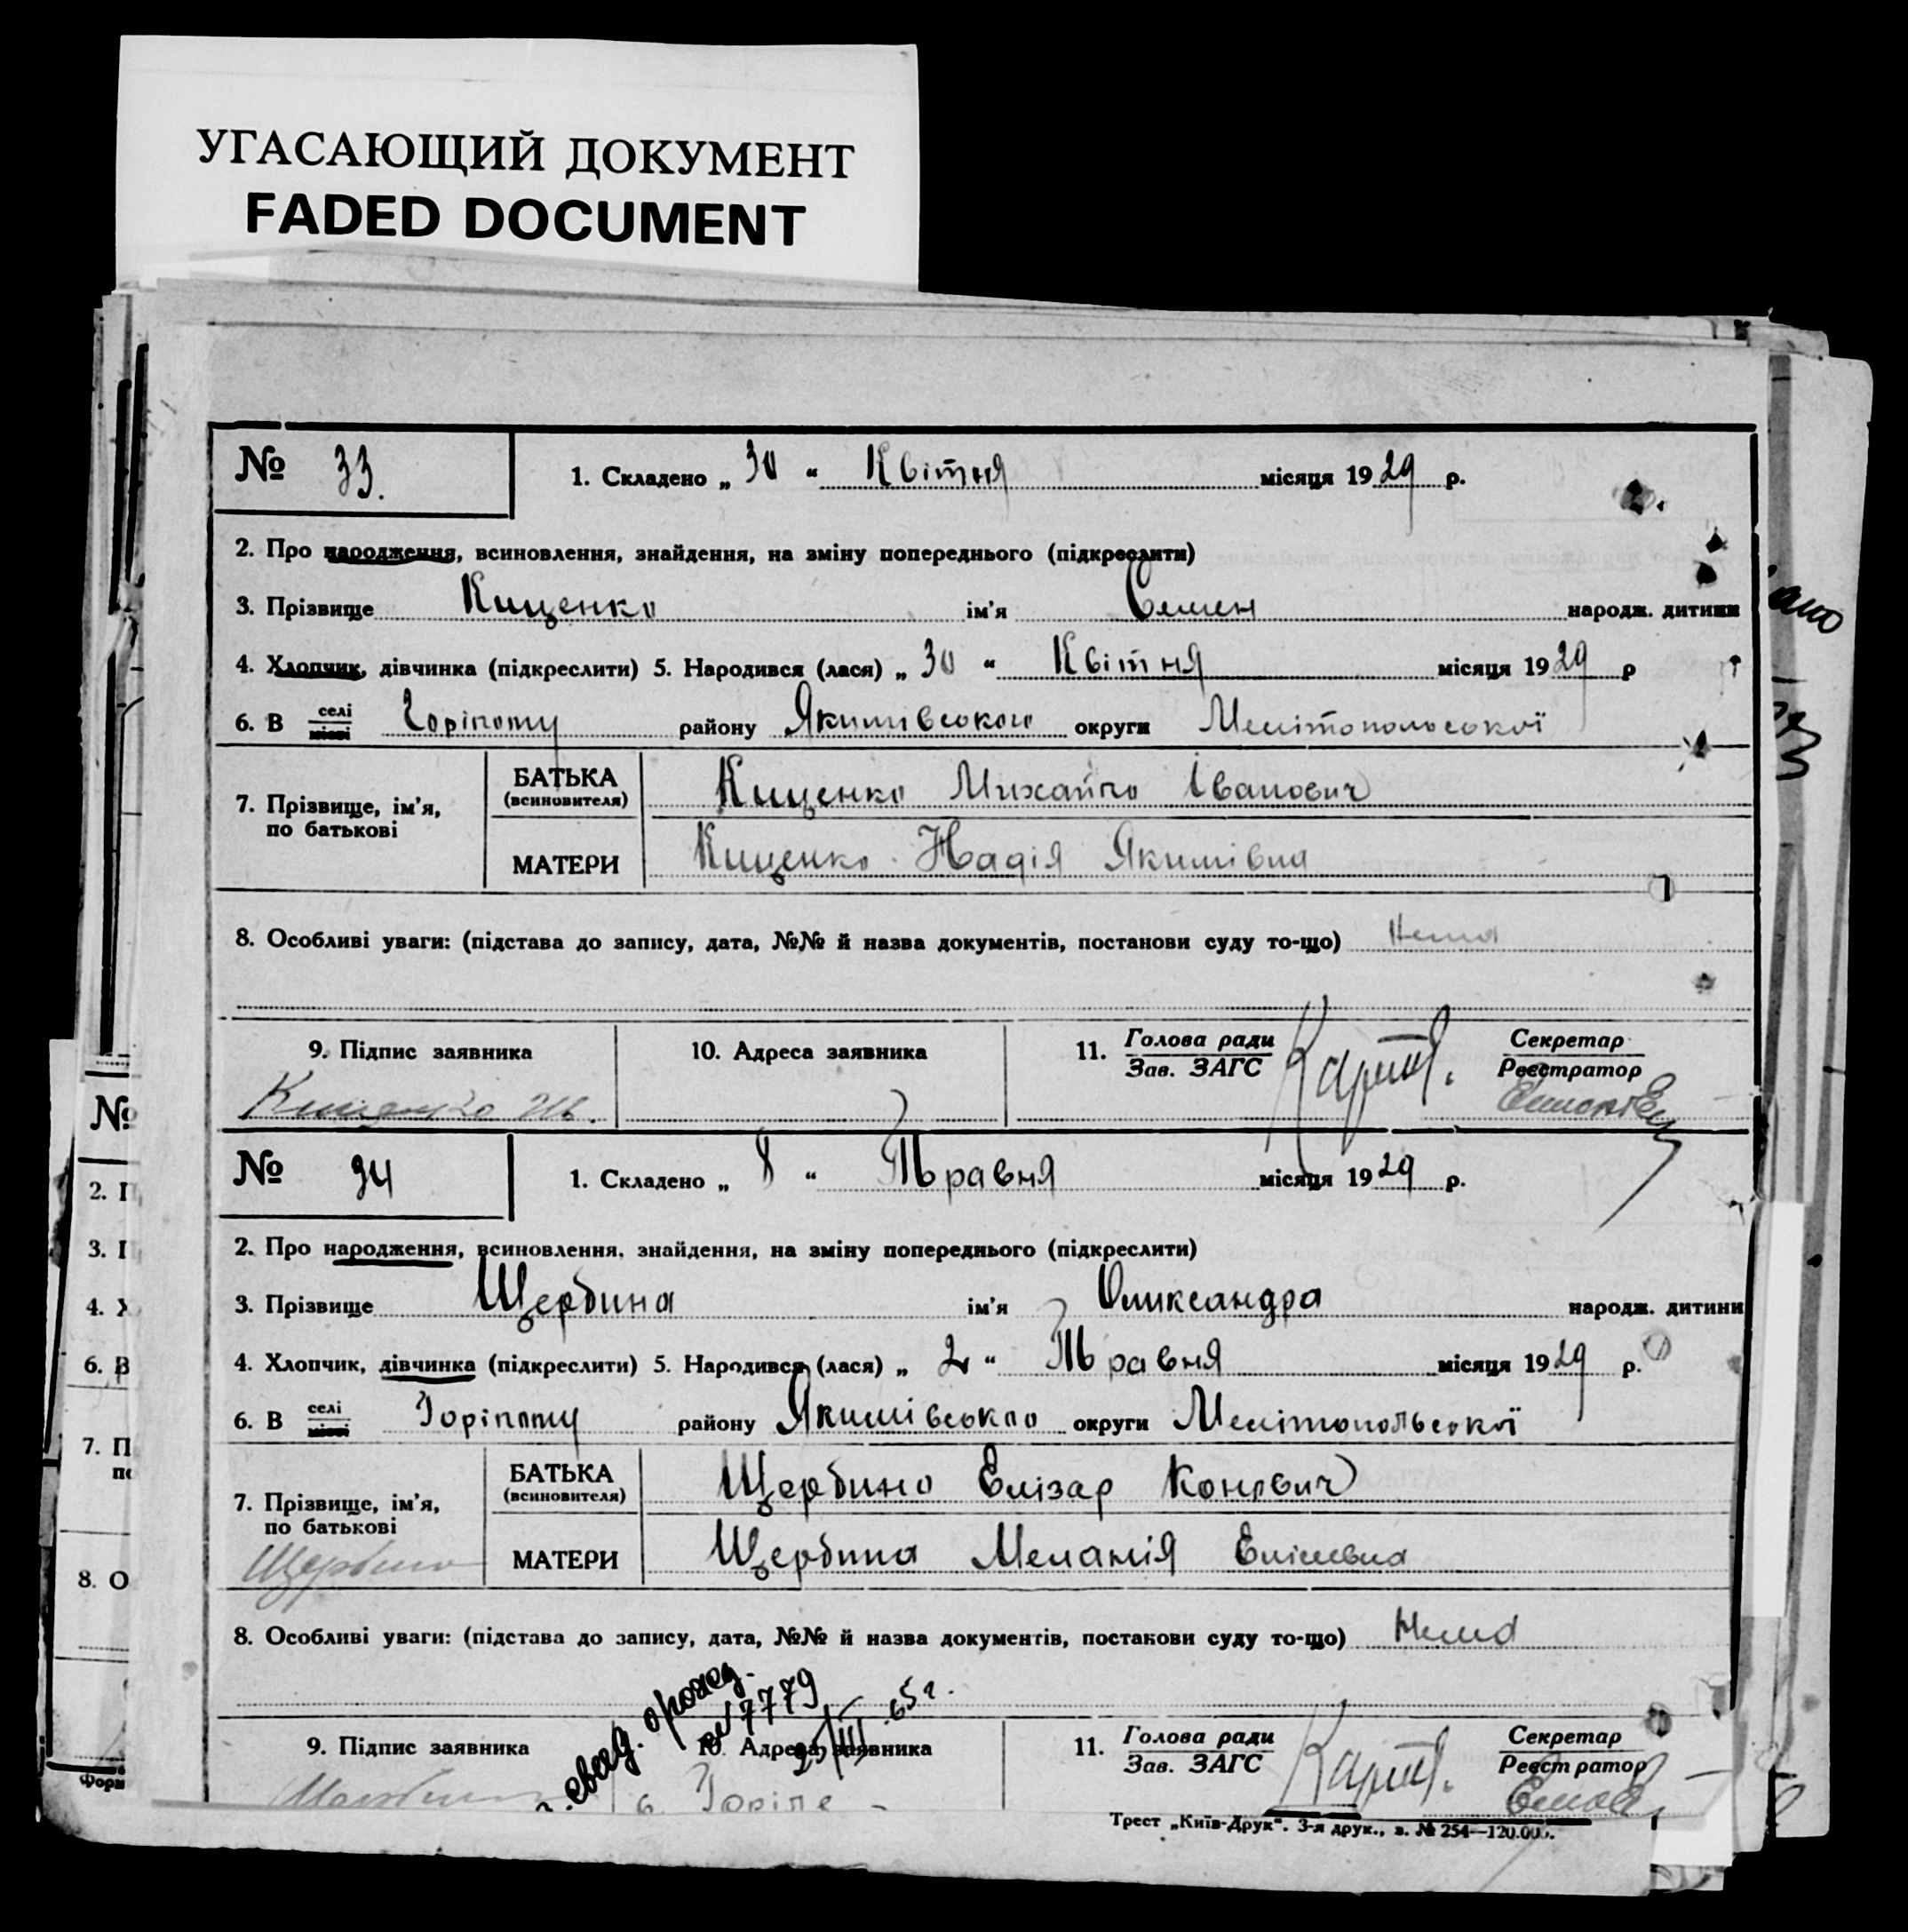 УГАСАЮЩИЙ ДОКУМЕНТ
FADED DOCUMENT
№ 33. 1. Складено „ 30 “ Квітня місяця 1929 р.
2. Про народження, всиновлення, знайдення, на зміну попереднього (підкреслити)
3. Прізвище Кищенко ім'я Семен народж. дитини
4. Хлопчик, дівчинка (підкреслити) 5. Народився (лася) „ 30 “ Квітня місяця 1929 р
6. В селі місті Горіпому району Якимівського округи Мелітопольської
7. Прізвище, ім'я, по батькові
БАТЬКА (всиновителя) Кищенко Михайло Іванович
МАТЕРИ Кищенко Надія Якимівна
8. Особливі уваги: (підстава до запису, дата, №№ й назва документів, постанови суду то-що) Нема
9. Підпис заявника 10. Адреса заявника 11. Голова ради Зав. ЗАГС Секретар Реєстратор
Кищенко
№ 34 1. Складено „ 8 “ Травня місяця 1929 р.
2. Про народження, всиновлення, знайдення, на зміну попереднього (підкреслити)
3. Прізвище Щербина ім'я Олександра народж. дитини
4. Хлопчик, дівчинка (підкреслити) 5. Народився (лася) „ 2 “ Травня місяця 1929 р.
6. В селі місті Горіпому району Якимівського округи Мелітопольської
7. Прізвище, ім'я, по батькові
БАТЬКА (всиновителя) Щербина Елізар Конович
МАТЕРИ Щербина Меланія
Щербина
8. Особливі уваги: (підстава до запису, дата, №№ й назва документів, постанови суду то-що) Нема
свид. о рожд.
№ 7779
25/III 65 г.
9. Підпис заявника 10. Адреса заявника 11. Голова ради Зав. ЗАГС Секретар Реєстратор
Трест „Київ-Друк“. 3-я друк., з. № 254—120.000.